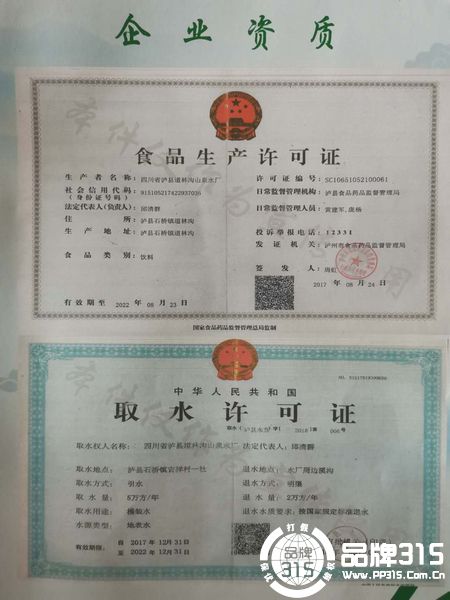 企业资质
食品生产许可证
生产者名称： 四川省泸县道林沟山泉水厂
社会信用代码： 915105217422937036
（身份证号码）
法定代表人(负责人)： 邱清群
住所： 泸县石桥镇道林沟
生产地址： 泸县石桥镇道林沟
食品类别： 饮料
有效期至 2022 年 08 月 23 日
许可证编号： SC10651052100061
日常监督管理机构： 泸县食品药品监督管理局
日常监督管理人员： 黄建军,庞杨
投诉举报电话： 12331
发证机关： 泸州市食品药品监督管理局
签发人： 周虹
2017 年 08 月 24 日
国家食品药品监督管理总局监制
中华人民共和国
取水许可证
取水（泸县水务）字〔2018〕第 006号
取水权人名称： 四川省泸县道林沟山泉水厂 法定代表人： 邱清群
取水地点： 泸县石桥镇官祥村一社
取水方式： 引水
取水量： 5万方/年
取水用途： 桶装水
水源类型： 地表水
退水地点： 水厂周边溪沟
退水方式： 明渠
退水量： 2万方/年
退水水质要求： 按国家规定标准退水
有效期 自 2017 年 12月 31日
至 2022 年 12月 31日
打假
品牌315
www.PP315.Com.cn